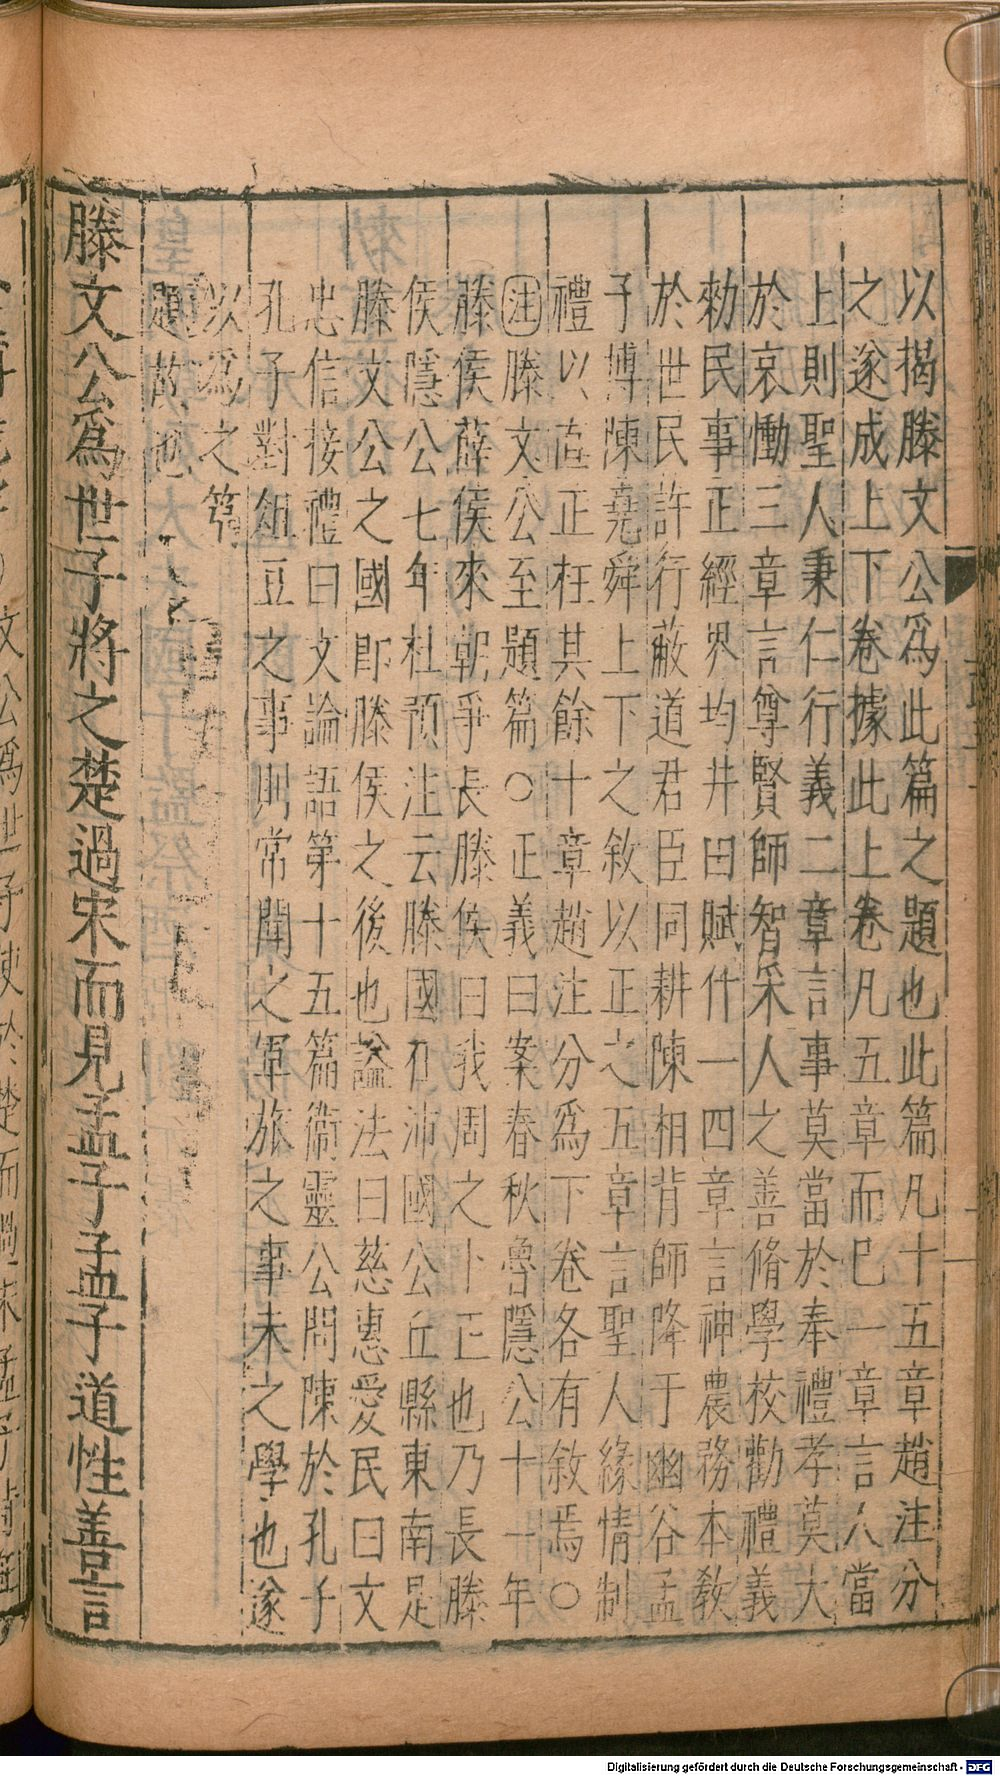 以揭滕文公爲此篇之題也此篇凡十五章趙注分
之遂成上下卷據此上卷凡五章而巳一章言人當
上則聖人秉仁行義二章言事莫當於奉禮孝莫大
於哀慟三章言尊賢師智采人之善脩學校勸禮義
勑民事正經界均井田賦什一四章言神農務本敎
於世民許行蔽道君臣同耕陳相背師降于幽谷孟
子博陳堯舜上下之敘以正之五章言聖人緣情制
禮以直正枉其餘十章趙注分爲下卷各有敘焉○
注滕文公至題篇○正義曰案春秋魯隱公十一年
滕侯薛侯來朝爭長滕侯曰我周之卜正也乃長滕
侯隱公七年杜預注云滕國在沛國公丘縣東南是
滕文公之國即滕侯之後也謚法曰慈惠愛民曰文
忠信接禮曰文論語第十五篇衞靈公問陳於孔子
孔子對俎豆之事則常聞之軍旅之事未之學也遂
以爲之篇
題故也
滕文公爲世子將之楚過宋而見孟子孟子道性善言
Digitalisierung gefördert durch die Deutsche Forschungsgemeinschaft - DFG